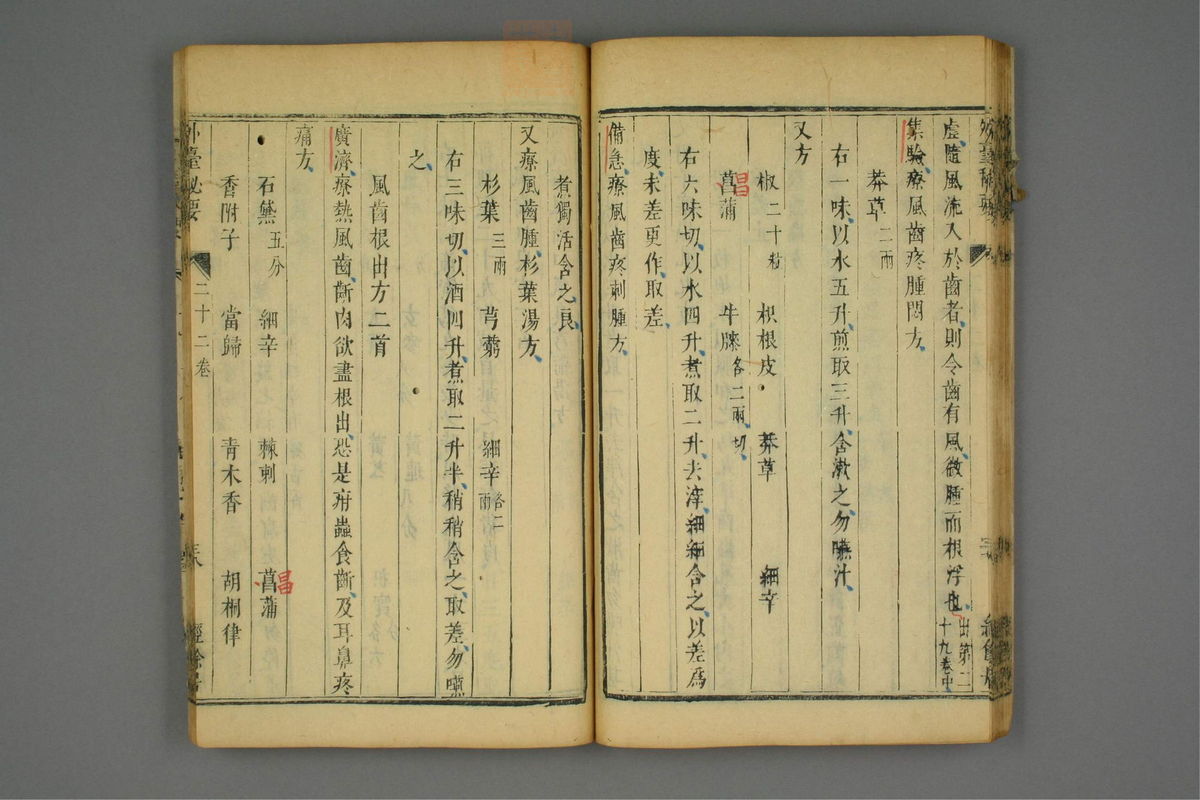 虛隨風流入於齒者則令齒有風微腫而根浮也出第二十九卷中
集驗療風齒疼腫悶方
莽草二兩
右一味以水五升煎取三升含漱之勿嚥汁
又方
椒二十粒 枳根皮 莽草 細辛
菖蒲 牛膝各二兩切
昌
右六味切以水四升煮取二升去滓細細含之以差爲
度未差更作取差
備急療風齒疼刺腫方
煮獨活含之良
又療風齒腫杉葉湯方
杉葉三兩 芎藭 細辛各二兩
右三味切以酒四升煮取二升半稍稍含之取差勿嚥
之
風齒根出方二首
廣濟療熱風齒齗肉欲盡根出恐是疳蟲食齗及耳鼻疼
痛方
石黛五分 細辛 棘刺 菖蒲
昌
香附子 當歸 青木香 胡桐律
外臺秘要 二十二卷 經餘居